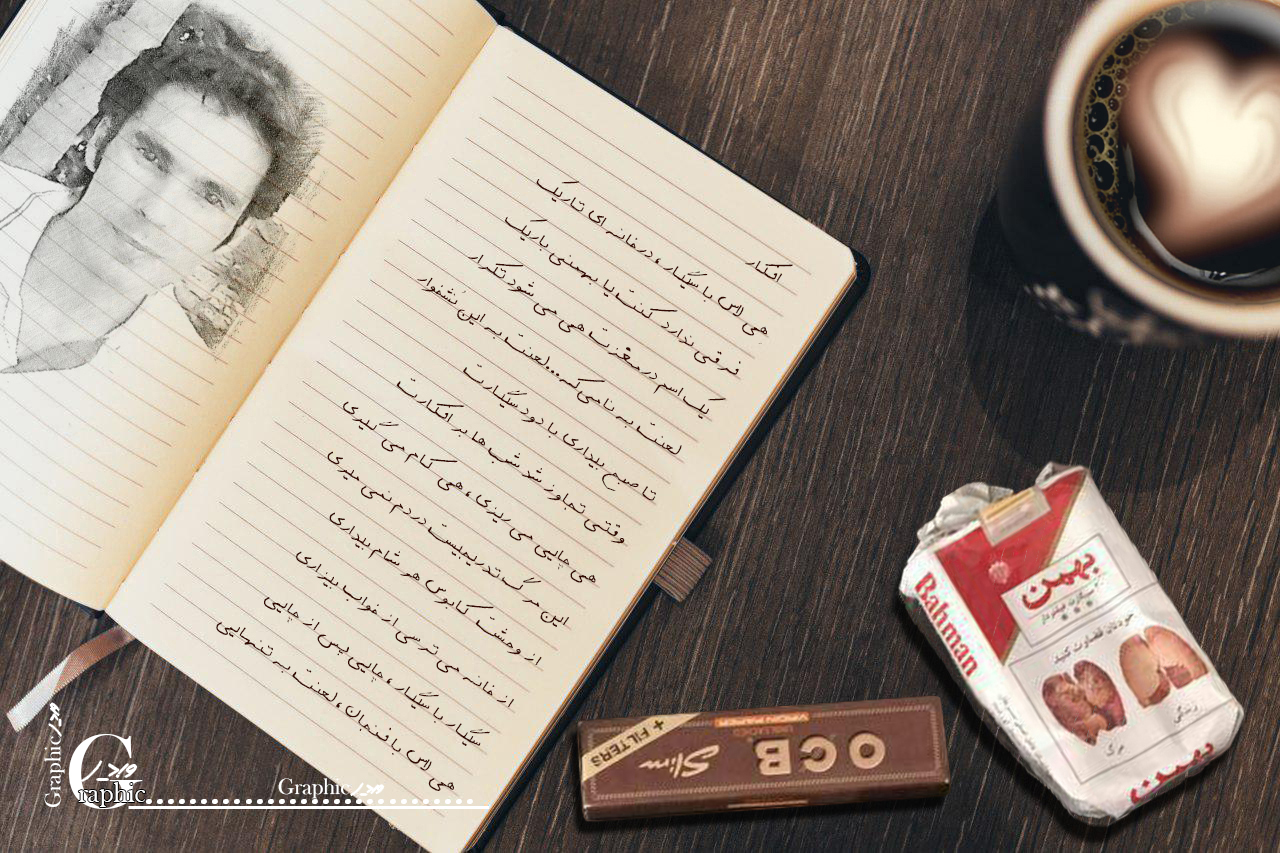 افکار
هِی لاس با سیگار، در خانه ای تاریک
فرقی ندارد کنت یا بهمنی باریک
یک اسم در مغزت هی می شود تکرار
لعنت به نامی که...لعنت به این نشخوار
تا صبح بیداری با دود سیگارت
وقتی تجاوز شد شب ها بر افکارت
هی چایی می ریزی، هی کام می گیری
این مرگ تدریجیست در دم نمی میری
از وحشت کابوس هر شام بیداری
از خانه می ترسی از خواب بیزاری
سیگار با سیگار، چایی پس از چایی
هی لاس با فنجان، لعنت به تنهایی
بهمن
Bahman
خودتان قضاوت کنید
زندگی
مرگ
بهمن
OCB
Slim
+ FILTERS
Graphic
Graphic
Graphic